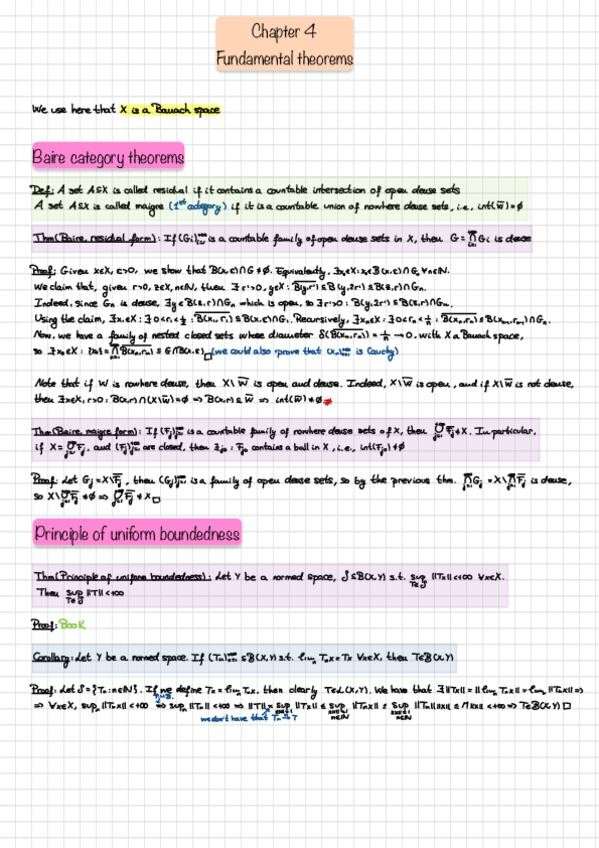 Chapter 4
Fundamental theorems
We use here that X is a Banach space
Baire category theorems
Def: A set A⊆X is called residual if it contains a countable intersection of open dense sets
A set A⊆X is called maigre (1st category) if it is a countable union of nowhere dense sets, i.e., int(W̅)=∅
Thm (Baire, residual form): If (Gi) is a countable family of open dense sets in X, then G = ∩ Gi is dense
Proof: Given x∈X, ε>0, we show that B(x,ε)∩G≠∅. Equivalently,
We claim that, given r>0, z∈X, n∈N, then
Indeed, since Gn is dense, ∃y∈B(z,r)∩Gn which is open, so ∃r'>0: B(y,2r')⊆B(z,r)∩Gn.
Using the claim, Recursively,
Now, we have a family of nested closed sets whose diameter → 0. with X a Banach space,
so (we could also prove that (xn) is Cauchy)
Note that if W is nowhere dense, then X\W̅ is open and dense. Indeed, X\W̅ is open, and if X\W̅ is not dense,
then ∃x∈X, r>0: B(x,r)∩(X\W̅)=∅ ⇒ B(x,r)⊆W̅ ⇒ int(W̅)≠∅
Thm (Baire, maigre form): If (Fj) is a countable family of nowhere dense sets of X, then ∪ Fj ≠ X. In particular,
if X = ∪ Fj, and (Fj) are closed, then ∃j0: Fj0 contains a ball in X, i.e., int(Fj0)≠∅
Proof: Let Gj = X\F̅j, then (Gj) is a family of open dense sets, so by the previous thm. ∩ Gj = X\∪ F̅j is dense,
so X\∪ F̅j ≠ ∅ ⇒ ∪ F̅j ≠ X □
Principle of uniform boundedness
Thm (Principle of uniform boundedness): Let Y be a normed space, S⊆B(X,Y) s.t. sup ||Tx|| < +∞ ∀x∈X.
Then sup ||T|| < +∞
Proof: Book
Corollary: Let Y be a normed space. If (Tn) ⊆B(X,Y) s.t. lim Tnx = Tx ∀x∈X, then T∈B(X,Y)
Proof: Let S = {Tn: n∈N}. If we define Tx = lim Tnx, then clearly T∈L(X,Y). We have that ∃ ||Tx|| = ||lim Tnx|| = lim ||Tnx|| ⇒
⇒ ∀x∈X, sup ||Tnx|| < +∞ ⇒ sup ||Tn|| < +∞ ⇒ ||T|| = sup ||Tx|| ≤ sup ||Tnx|| ≤ sup ||Tn|| ||x|| < +∞ ⇒ T∈B(X,Y) □
we don't have that Tn → T